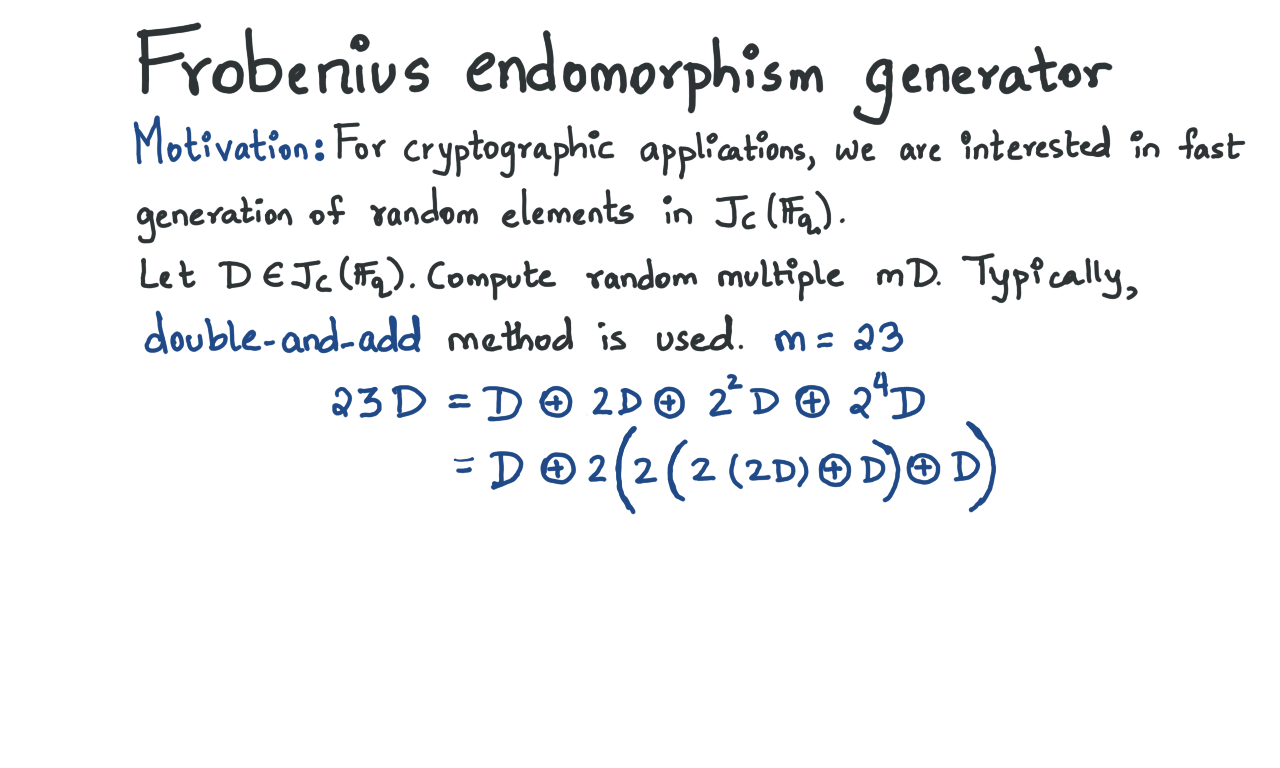 Frobenius endomorphism generator
Motivation: For cryptographic applications, we are interested in fast
generation of random elements in J_C(𝔽_q).
Let D ∈ J_C(𝔽_q). Compute random multiple mD. Typically,
double-and-add method is used. m = 23
23D = D ⊕ 2D ⊕ 2²D ⊕ 2⁴D
= D ⊕ 2(2(2(2D) ⊕ D) ⊕ D)